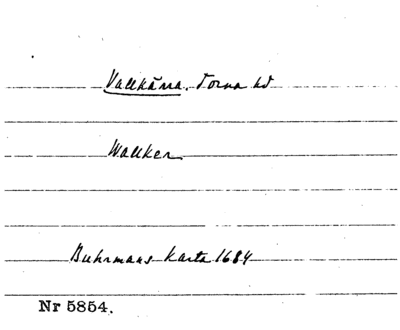 Vallkärra. Torna hd
Wallker
Buhrmans karta 1684
Nr 5854.